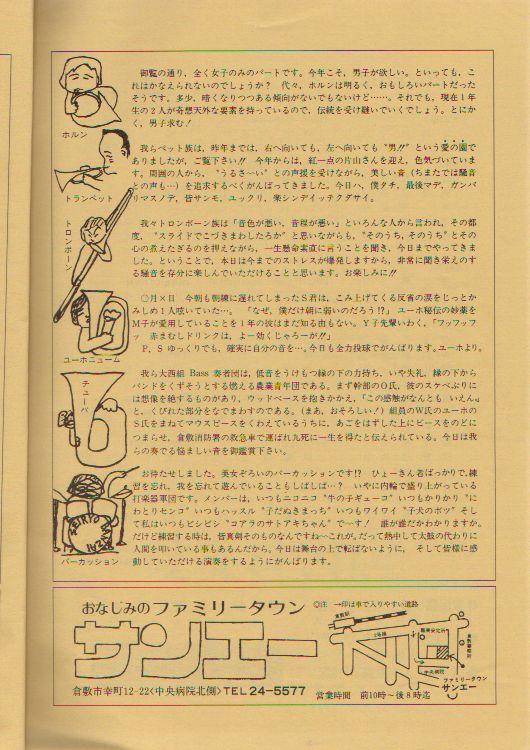 御覧の通り，全く女子のみのパートです。今年こそ，男子が欲しい。といっても，こ
れはかなえられないのでしょうか？　代々，ホルンは明るく，おもしろいパートだった
そうです。多少，暗くなりつつある傾向がないでもないけど……。それでも，現在１年
生の２人が奇想天外な要素を持っているので，伝統を受け継いでいくでしょう。とにか
く，男子求む！
ホルン
我らペット族は，昨年までは，右へ向いても，左へ向いても〝男!!〟という愛の園で
ありましたが，ご覧下さい!!　今年からは，紅一点の片山さんを迎え，色気づいていま
す。周囲の人から，〝うるさ〜い〟との声援を受けながら，美しい音（ちまたでは騒音
との声も…）を追求するべくがんばってきました。今日ハ，僕タチ，最後マデ，ガンバ
リマスノデ，皆サンモ，ユックリ，楽シンデイッテクダサイ。
トランペット
我々トロンボーン族は「音色が悪い，音程が悪い」といろんな人から言われ，その都
度，〝スライドでこづきまわしたろか〟と思いながらも，〝そのうち，そのうち〟とその
心の煮えたぎるのを押えながら，一生懸命素直に言うことを聞き，今日までやってきま
した。ということで，本日は今までのストレスが爆発しますから，非常に聞き栄えのす
る騒音を存分に楽しんでいただけることと思います。お楽しみに!!
トロンボーン
〇月×日　今朝も朝練に遅れてしまったＳ君は，こみ上げてくる反省の涙をじっとか
みしめ１人呟いていた…。「なぜ，僕だけ朝に弱いのだろう!?」ユーホ秘伝の妙薬を
Ｍ子が愛用していることを１年の彼はまだ知る由もない。Ｙ子先輩いわく，「フッフッフ
ッ　赤まむしドリンクは，よー効くじゃろーが!!」
Ｐ，Ｓ ゆっくりでも，確実に自分の音を…。今日も全力投球でがんばります。ユーホより。
ユーホニューム
我ら大西組 Bass 奏者団は，低音をうけもつ縁の下の力持ち，いや失礼，縁の下から
バンドをくずそうとする燃える農業青年団である。まず幹部のＯ氏，彼のスケベぶりに
は想像を絶するものがあり，ウッドベースを抱きかかえ，「この感触がなんとも いえん」
と，くびれた部分をなでまわすのである。（まあ，おそろしい！）組員のＷ氏のユーホの
Ｓ氏をまねてマウスピースをくわえているうちに，あごをはずした上にピースをのどに
つまらせ，倉敷消防署の救急車で運ばれ九死に一生を得たと伝えられている。今日は我
らの奏でる悩ましい音を御鑑賞下さい。
チューバ
お待たせしました。美女ぞろいのパーカッションです!?　ひょーきん者ばっかりで，練
習を忘れ，我を忘れて遊んでいることもしばしば…？　いやに内輪で盛り上がっている
打楽器軍団です。メンバーは，いつもニコニコ〝牛の子ギューコ〟いつもかりかり〝に
わとりセンコ〟いつもハッスル〝子だぬきまっち〟いつもワイワイ〝子犬のポツ〟そし
て私はいつもビシビシ〝コアラのサトアキちゃん〟で〜す！　誰が誰だかわかりますか。
だけど練習する時は，皆真剣そのものなんですね〜これが。だって熱中して太鼓の代わりに
人間を叩いている事もあるんだから。今日は舞台の上で転ばないように，そして皆様に感
動していただける演奏をするようにがんばります。
パーカッション
おなじみのファミリータウン
サンエー
倉敷市幸町12-22〈中央病院北側〉TEL 24-5577
営業時間　前10時〜後8時迄
◎注　→印は車で入りやすい道路
倉敷駅
中央病院
ファミリータウン
サンエー